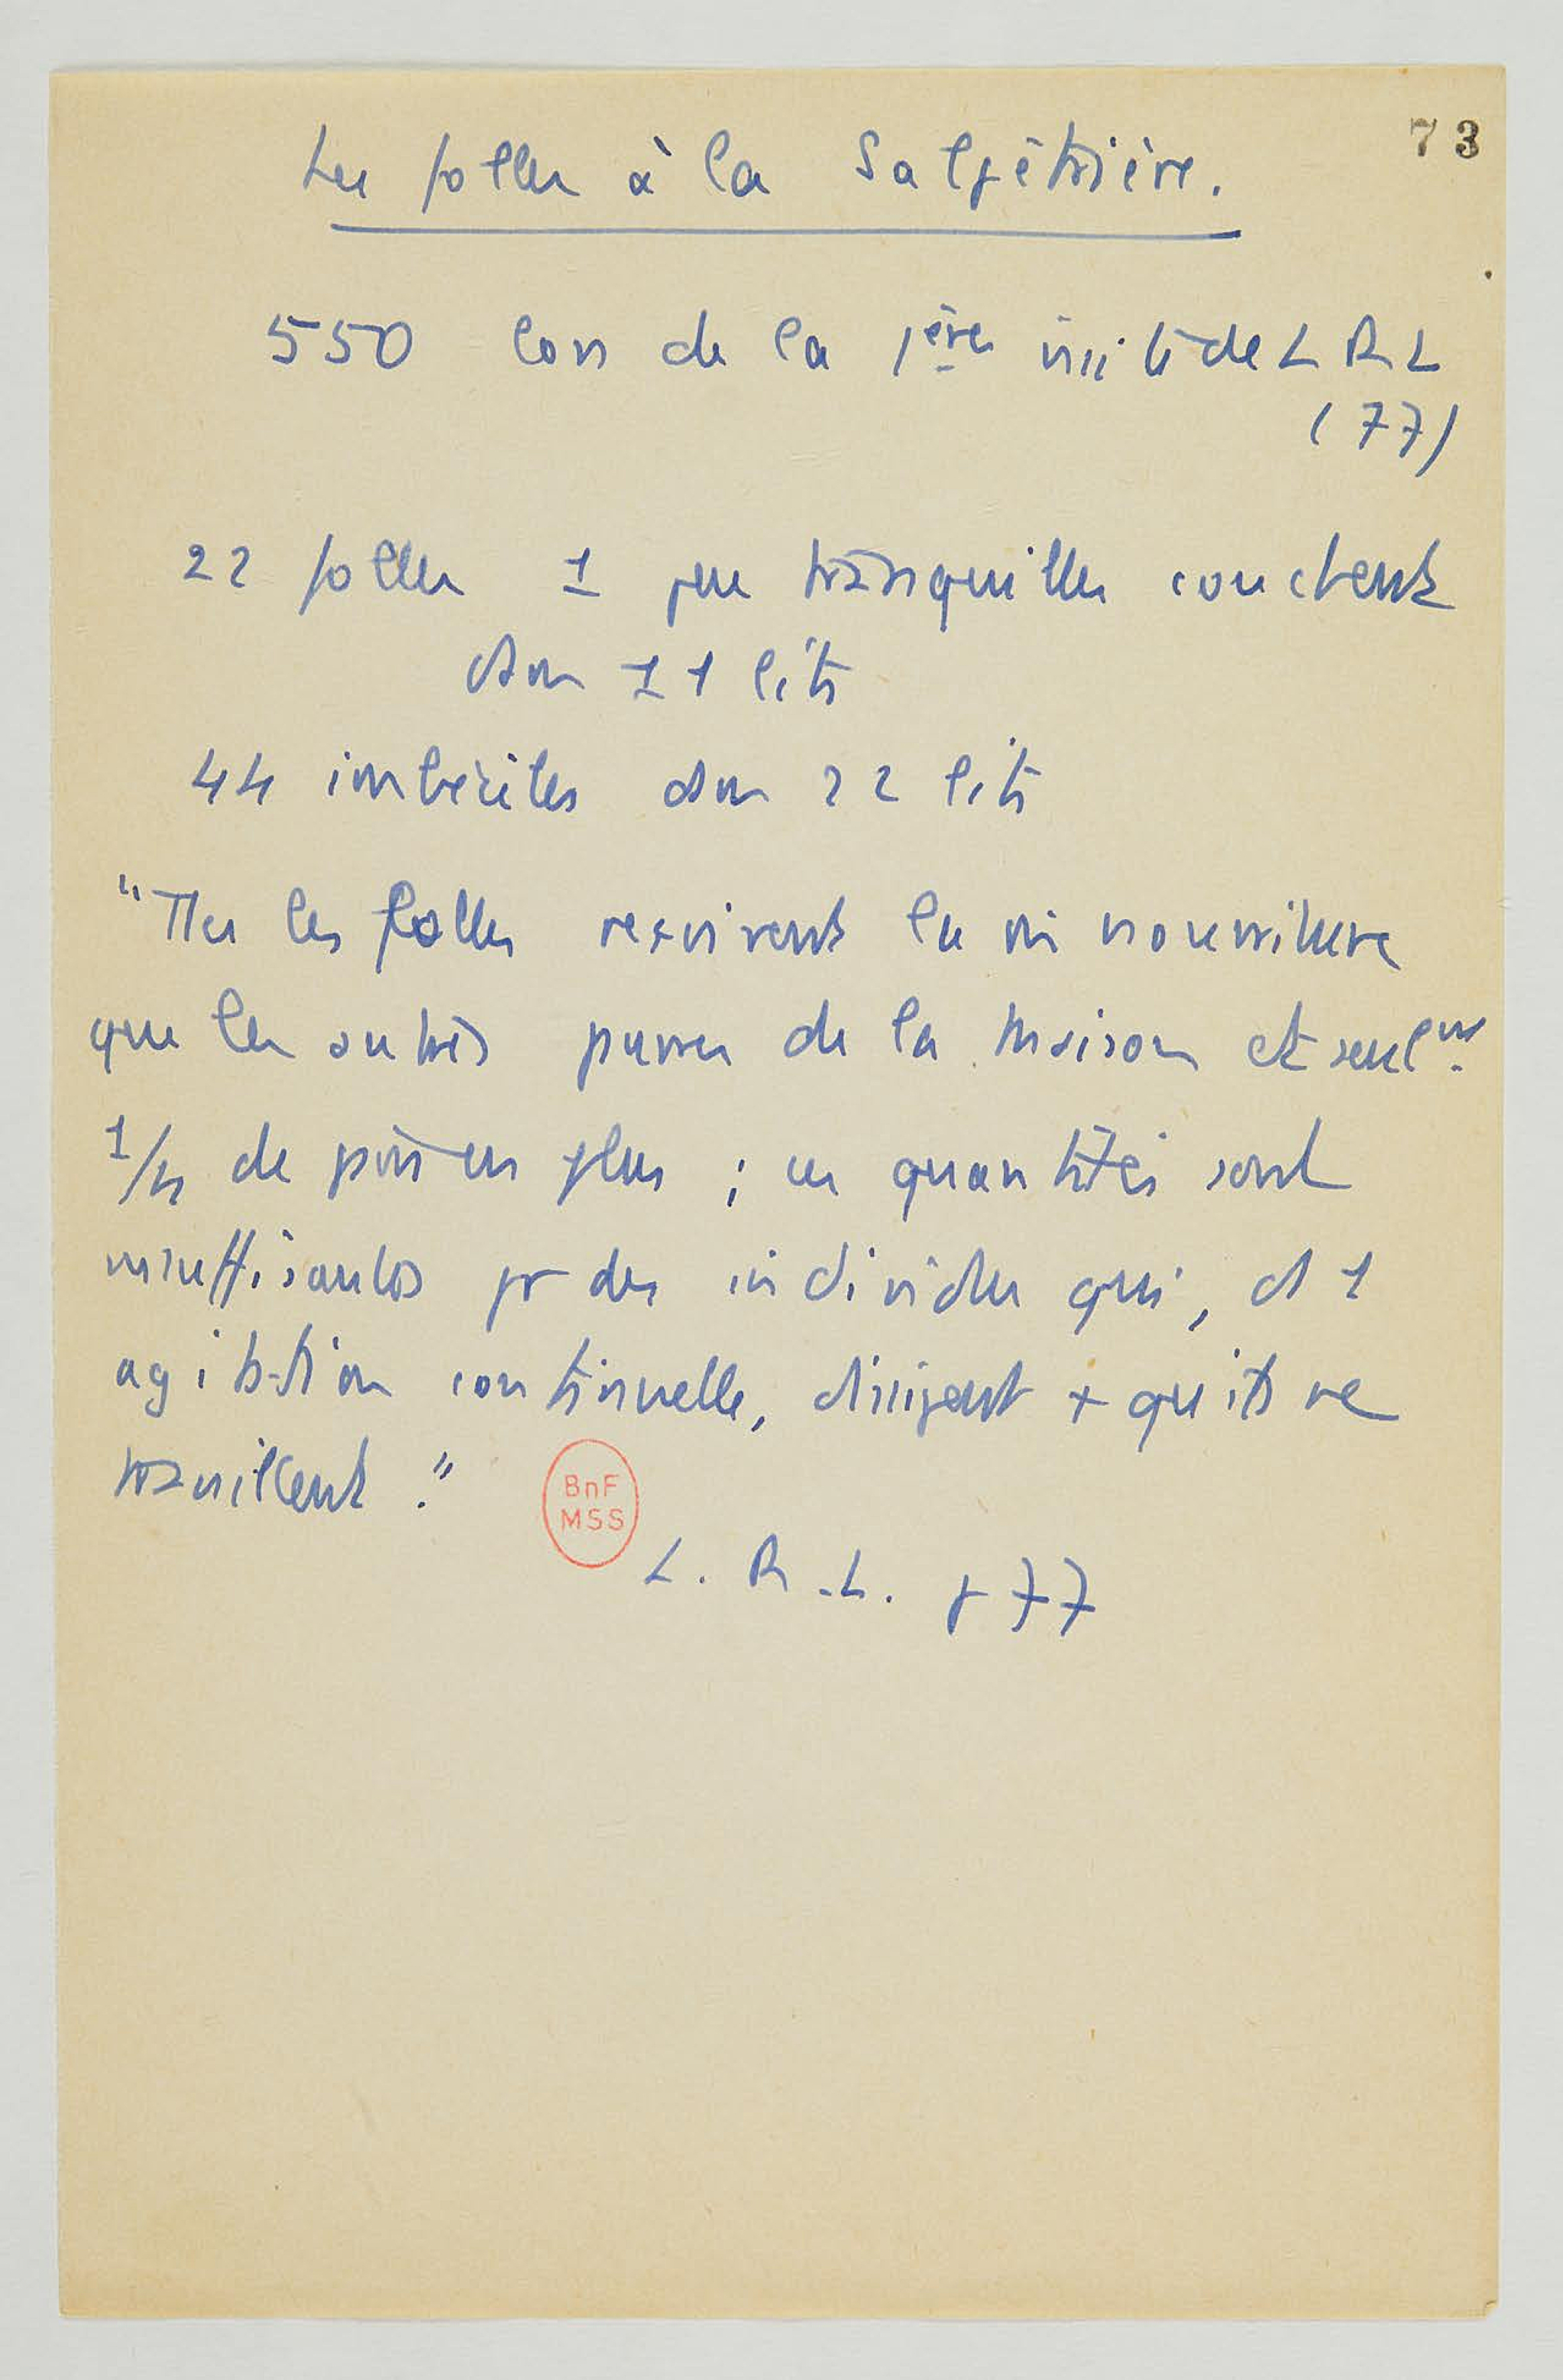 73
Les folles à la Salpêtrière.
550 lors de la 1ère visite de L R L
(77)
22 folles 1 peu tranquilles couchent
dans 11 lits
44 imbéciles dans 22 lits
"Ttes les folles reçoivent la m̂ nourriture
que les autres pauvres de la maison et seulnt
1/4 de pain en plus ; ces quantités sont
insuffisantes pr des individus qui, ds 1
agitation continuelle, dissipent + qu'ils ne
travaillent."
BnF
MSS
L. R. L. p 77